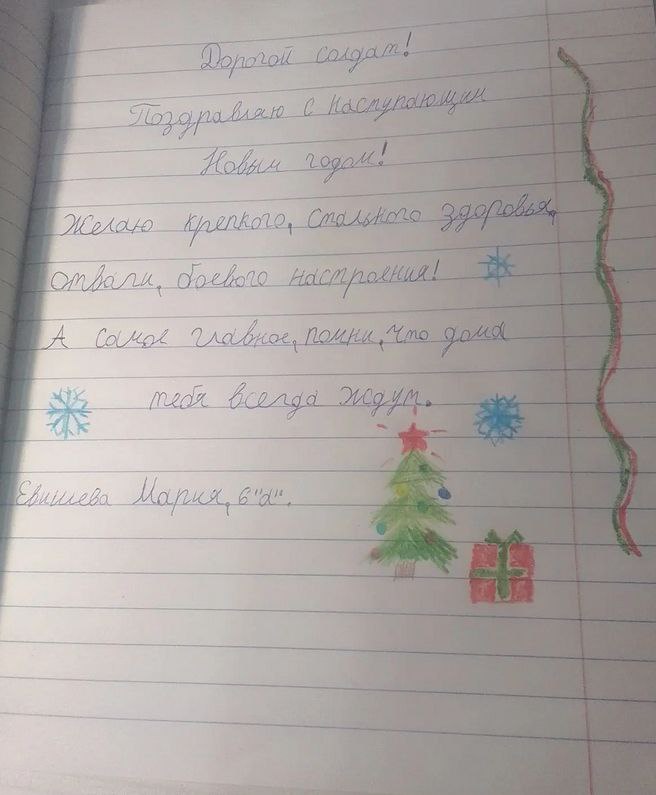 Дорогой солдат!
Поздравляю с наступающим
Новым годом!
Желаю крепкого, стального здоровья,
отваги, боевого настроения!
А самое главное, помни, что дома
тебя всегда ждут.
Евишева Мария, 6"а".